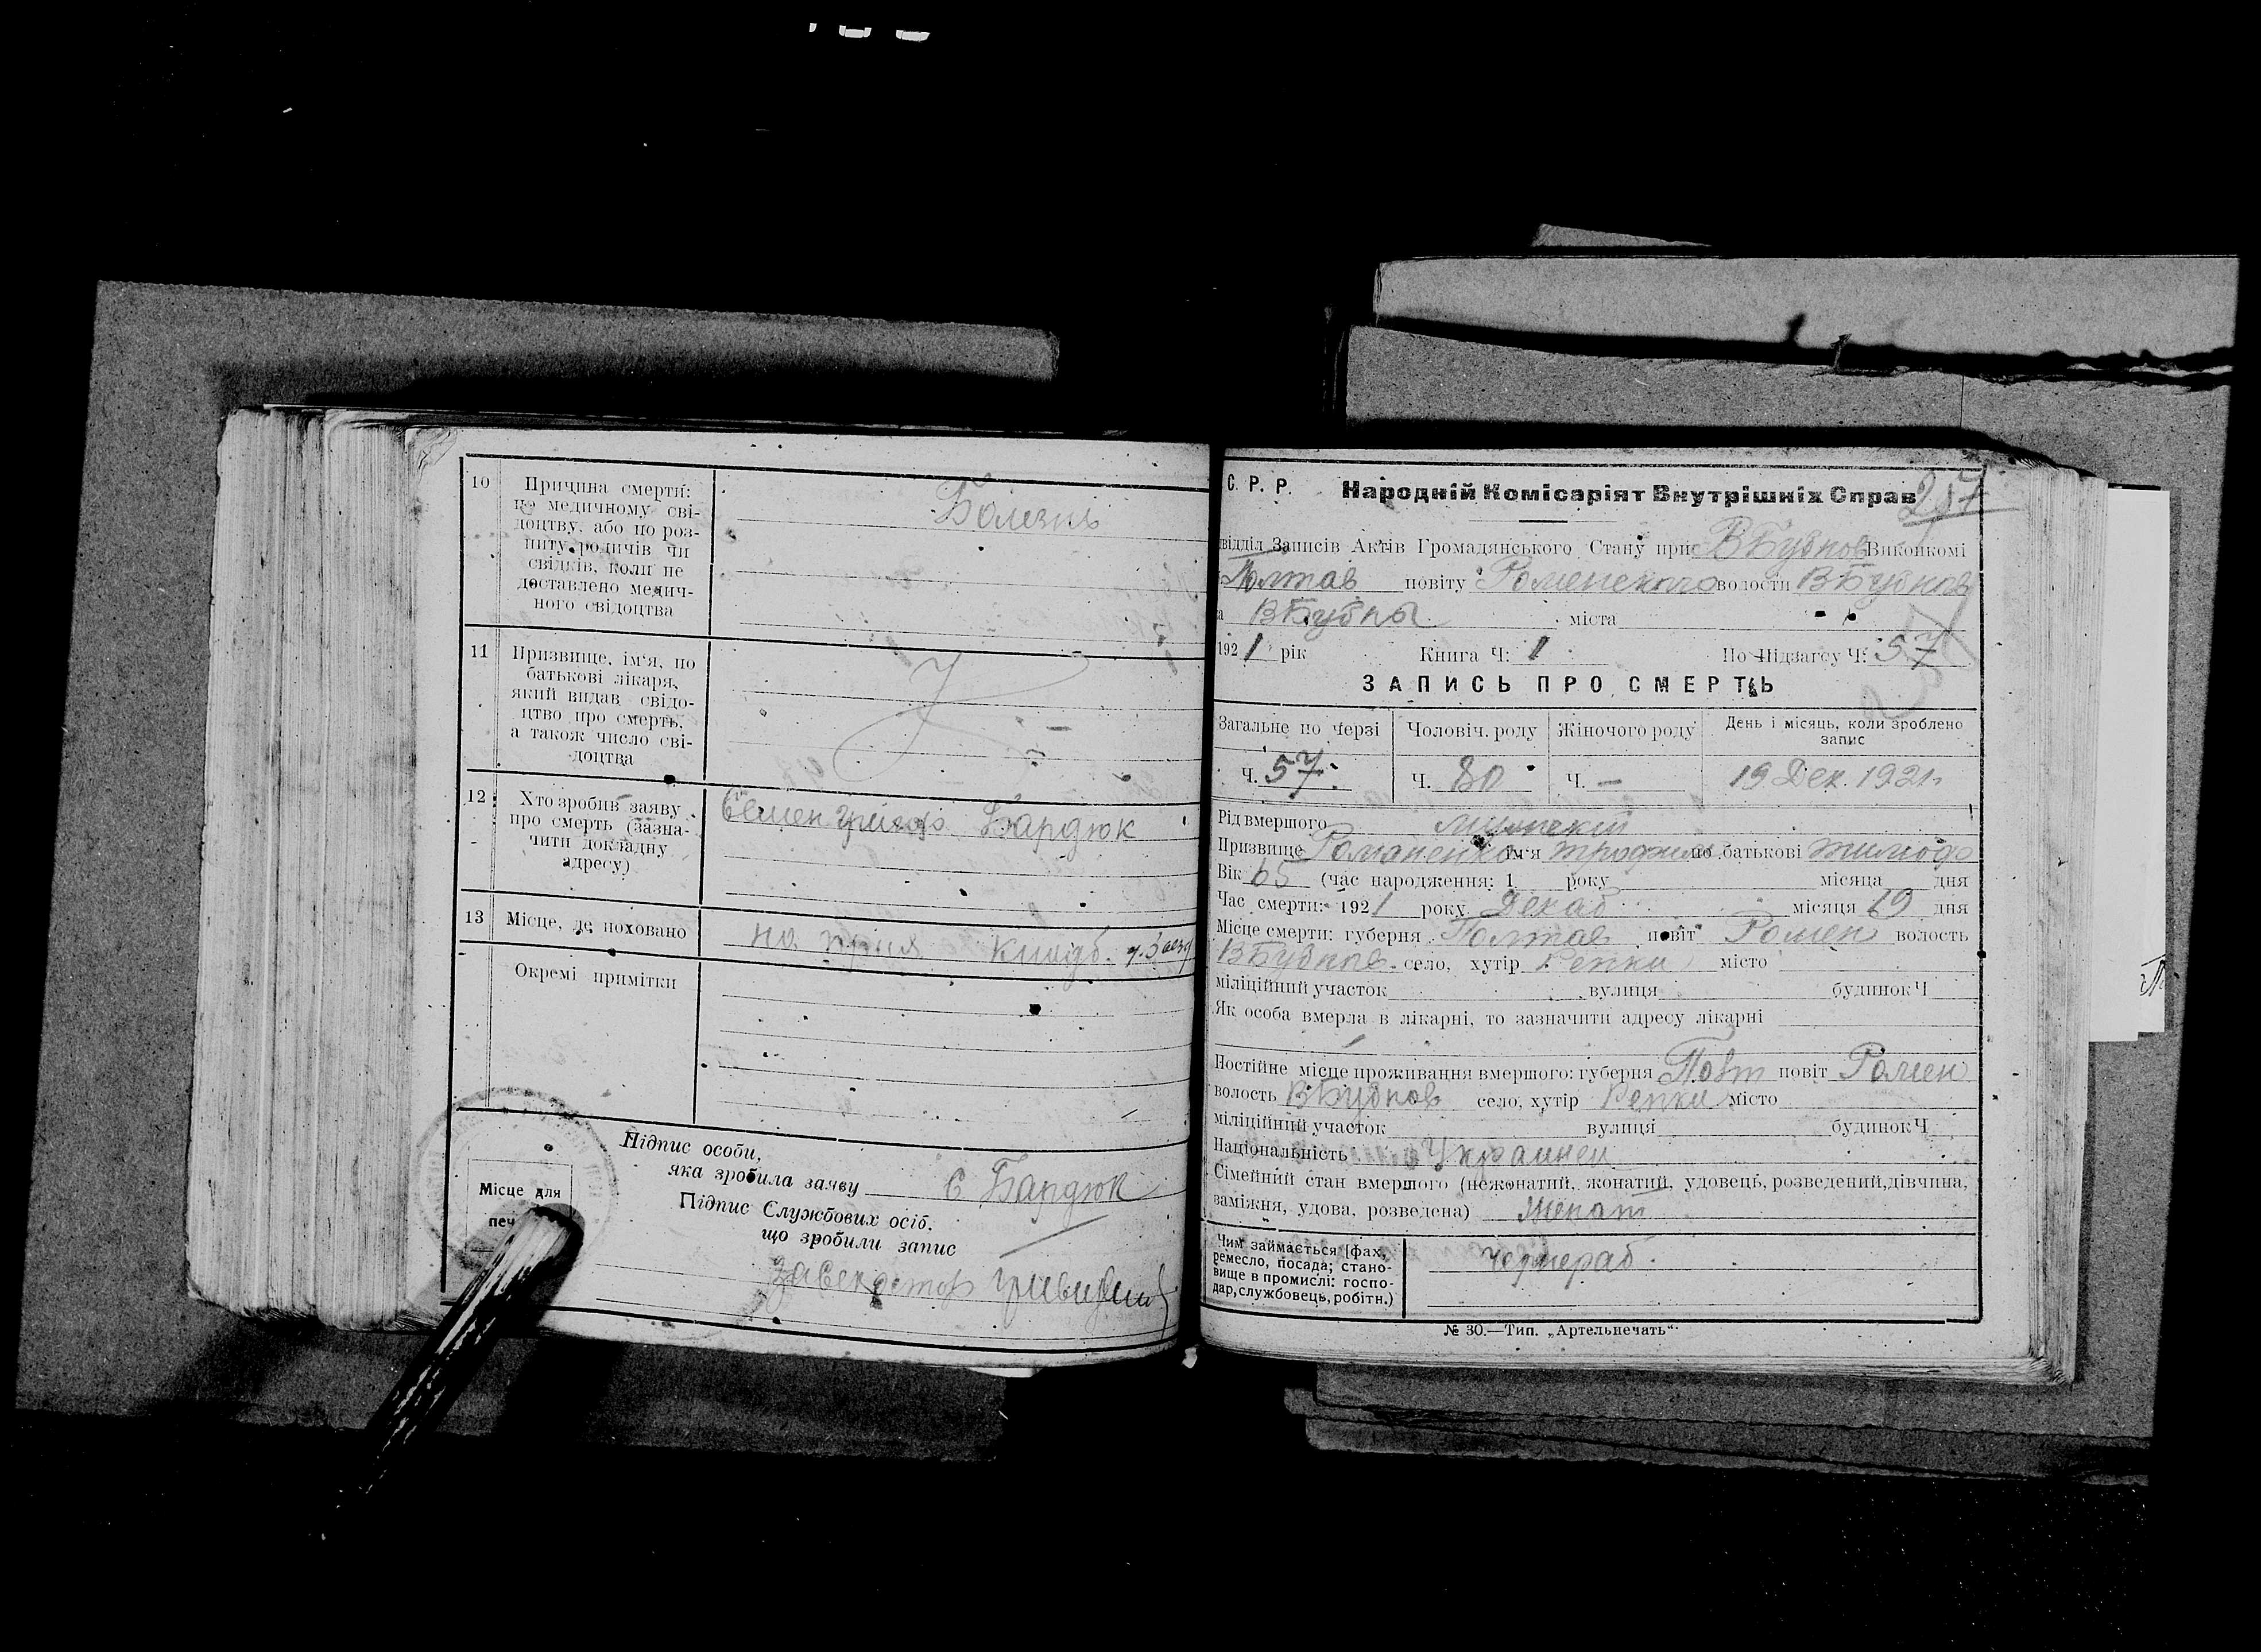 10 Причина смерти: Болезнь
по медичному сві-
доцтву, або по роз-
питу родичів чи
свідків, коли не
доставлено медич-
ного свідоцтва
11 Призвище, ім'я, по
батькові лікаря,
який видав свідо-
цтво про смерть,
а також число сві-
доцтва
12 Хто зробив заяву Бардюк
про смерть (зазна-
чити докладну
адресу)
13 Місце, де поховано на
Окремі примітки
Підпис особи,
яка зробила заяву Є Бардюк
Підпис Службових осіб.
що зробили запис
Місце для
печ
С. Р. Р. Народній Комісаріят Внутрішніх Справ 217
відділ Записів Актів Громадянського Стану при ВБубнов Виконкомі
Полтав повіту Роменского волости ВБубнов
а ВБубны міста
1921 рік Книга Ч: 1 По Підзагсу Ч: 57
ЗАПИСЬ ПРО СМЕРТЬ
Загальне по черзі Чоловіч. роду Жіночого роду День і місяць, коли зроблено
запис
Ч. 57 Ч. 30 Ч. — 19 Дек. 1921 г
Рід вмершого мужскій
Призвище Романенко ім'я Трофим по батькові Тимоф
Вік 65 (час народження: 1 року місяца дня
Час смерти: 1921 року Декаб місяця 19 дня
Місце смерти: губерня Полтав повіт Ромен волость
ВБубнов село, хутір Репки місто
міліційний участок вулиця будинок Ч
Як особа вмерла в лікарні, то зазначити адресу лікарні
Постійне місце проживання вмершого: губерня Полт повіт Ромен
волость ВБубнов село, хутір Репки місто
міліційний участок вулиця будинок Ч
Національність Украинец
Сімейний стан вмершого (нежонатий, жонатий, удовець, розведений, дівчина,
заміжня, удова, розведена) Женат
Чим займається [фах, чернораб.
ремесло, посада; стано-
вище в промислі: госпо-
дар, службовець, робітн.)
№ 30.—Тип. „Артельпечать“